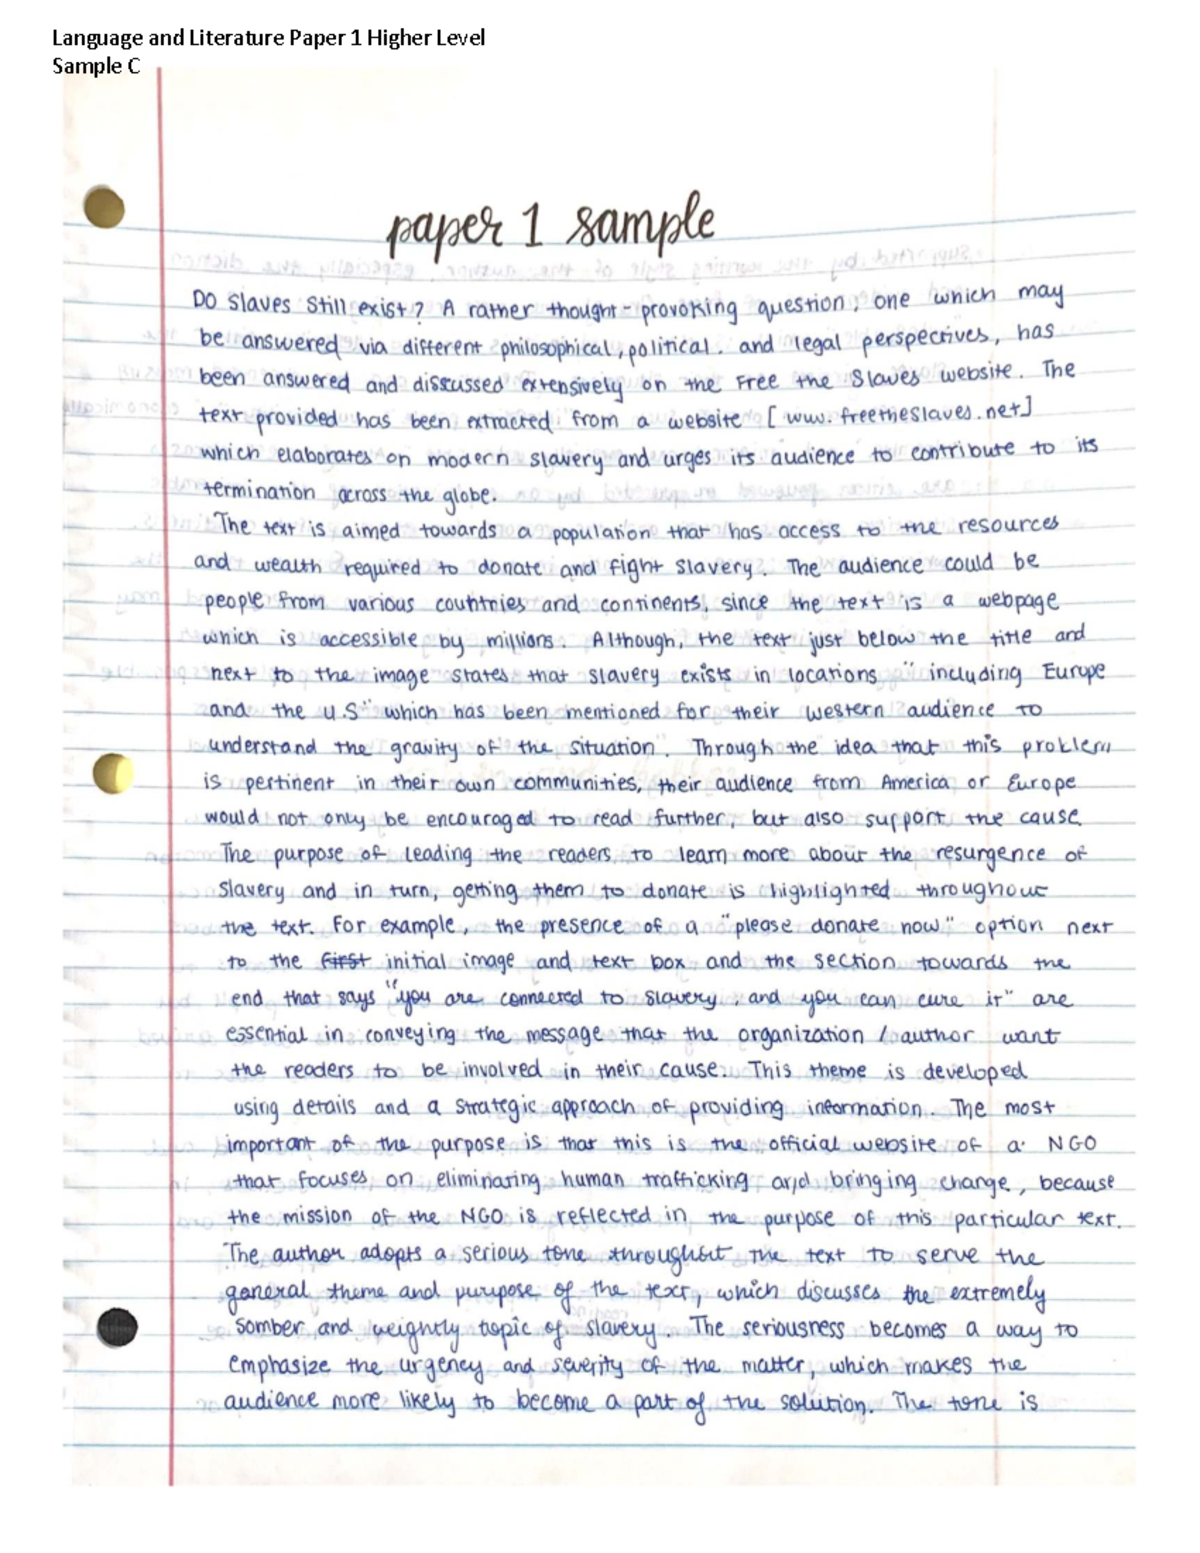 Language and Literature Paper 1 Higher Level
Sample C
paper 1 sample
Do slaves still exist? A rather thought-provoking question, one which may
be answered via different philosophical, political. and legal perspectives, has
been answered and discussed extensively on the Free the Slaves website. The
text provided has been extracted from a website [www.freetheslaves.net]
which elaborates on modern slavery and urges its audience to contribute to its
termination across the globe.
The text is aimed towards a population that has access to the resources
and wealth required to donate and fight slavery. The audience could be
people from various countries and continents, since the text is a webpage
which is accessible by millions. Although, the text just below the title and
next to the image states that slavery exists in locations "including Europe
and the U.S" which has been mentioned for their western audience to
understand the gravity of the situation". Through the idea that this problem
is pertinent in their own communities, their audience from America or Europe
would not only be encouraged to read further, but also support the cause.
The purpose of leading the readers, to learn more about the resurgence of
slavery and in turn, getting them to donate is highlighted throughout
the text. For example, the presence of a "please donate now" option next
to the first initial image and text box and the section towards the
end that says "you are connected to slavery, and you can cure it" are
essential in conveying the message that the organization / author want
the readers to be involved in their cause. This theme is developed
using details and a strategic approach of providing information. The most
important of the purpose is that this is the official website of a NGO
that focuses on eliminating human trafficking and bringing change, because
the mission of the NGO is reflected in the purpose of this particular text.
The author adopts a serious tone throughout the text to serve the
general theme and purpose of the text, which discusses the extremely
somber and weightly topic of slavery. The seriousness becomes a way to
emphasize the urgency and severity of the matter, which makes the
audience more likely to become a part of the solution. The tone is